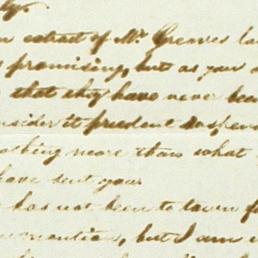 extract of Mr. Greaves
promising, but as you
that they have never been
consider it prudent
nothing more than what
have sent you
has not been to town
mention, but I am